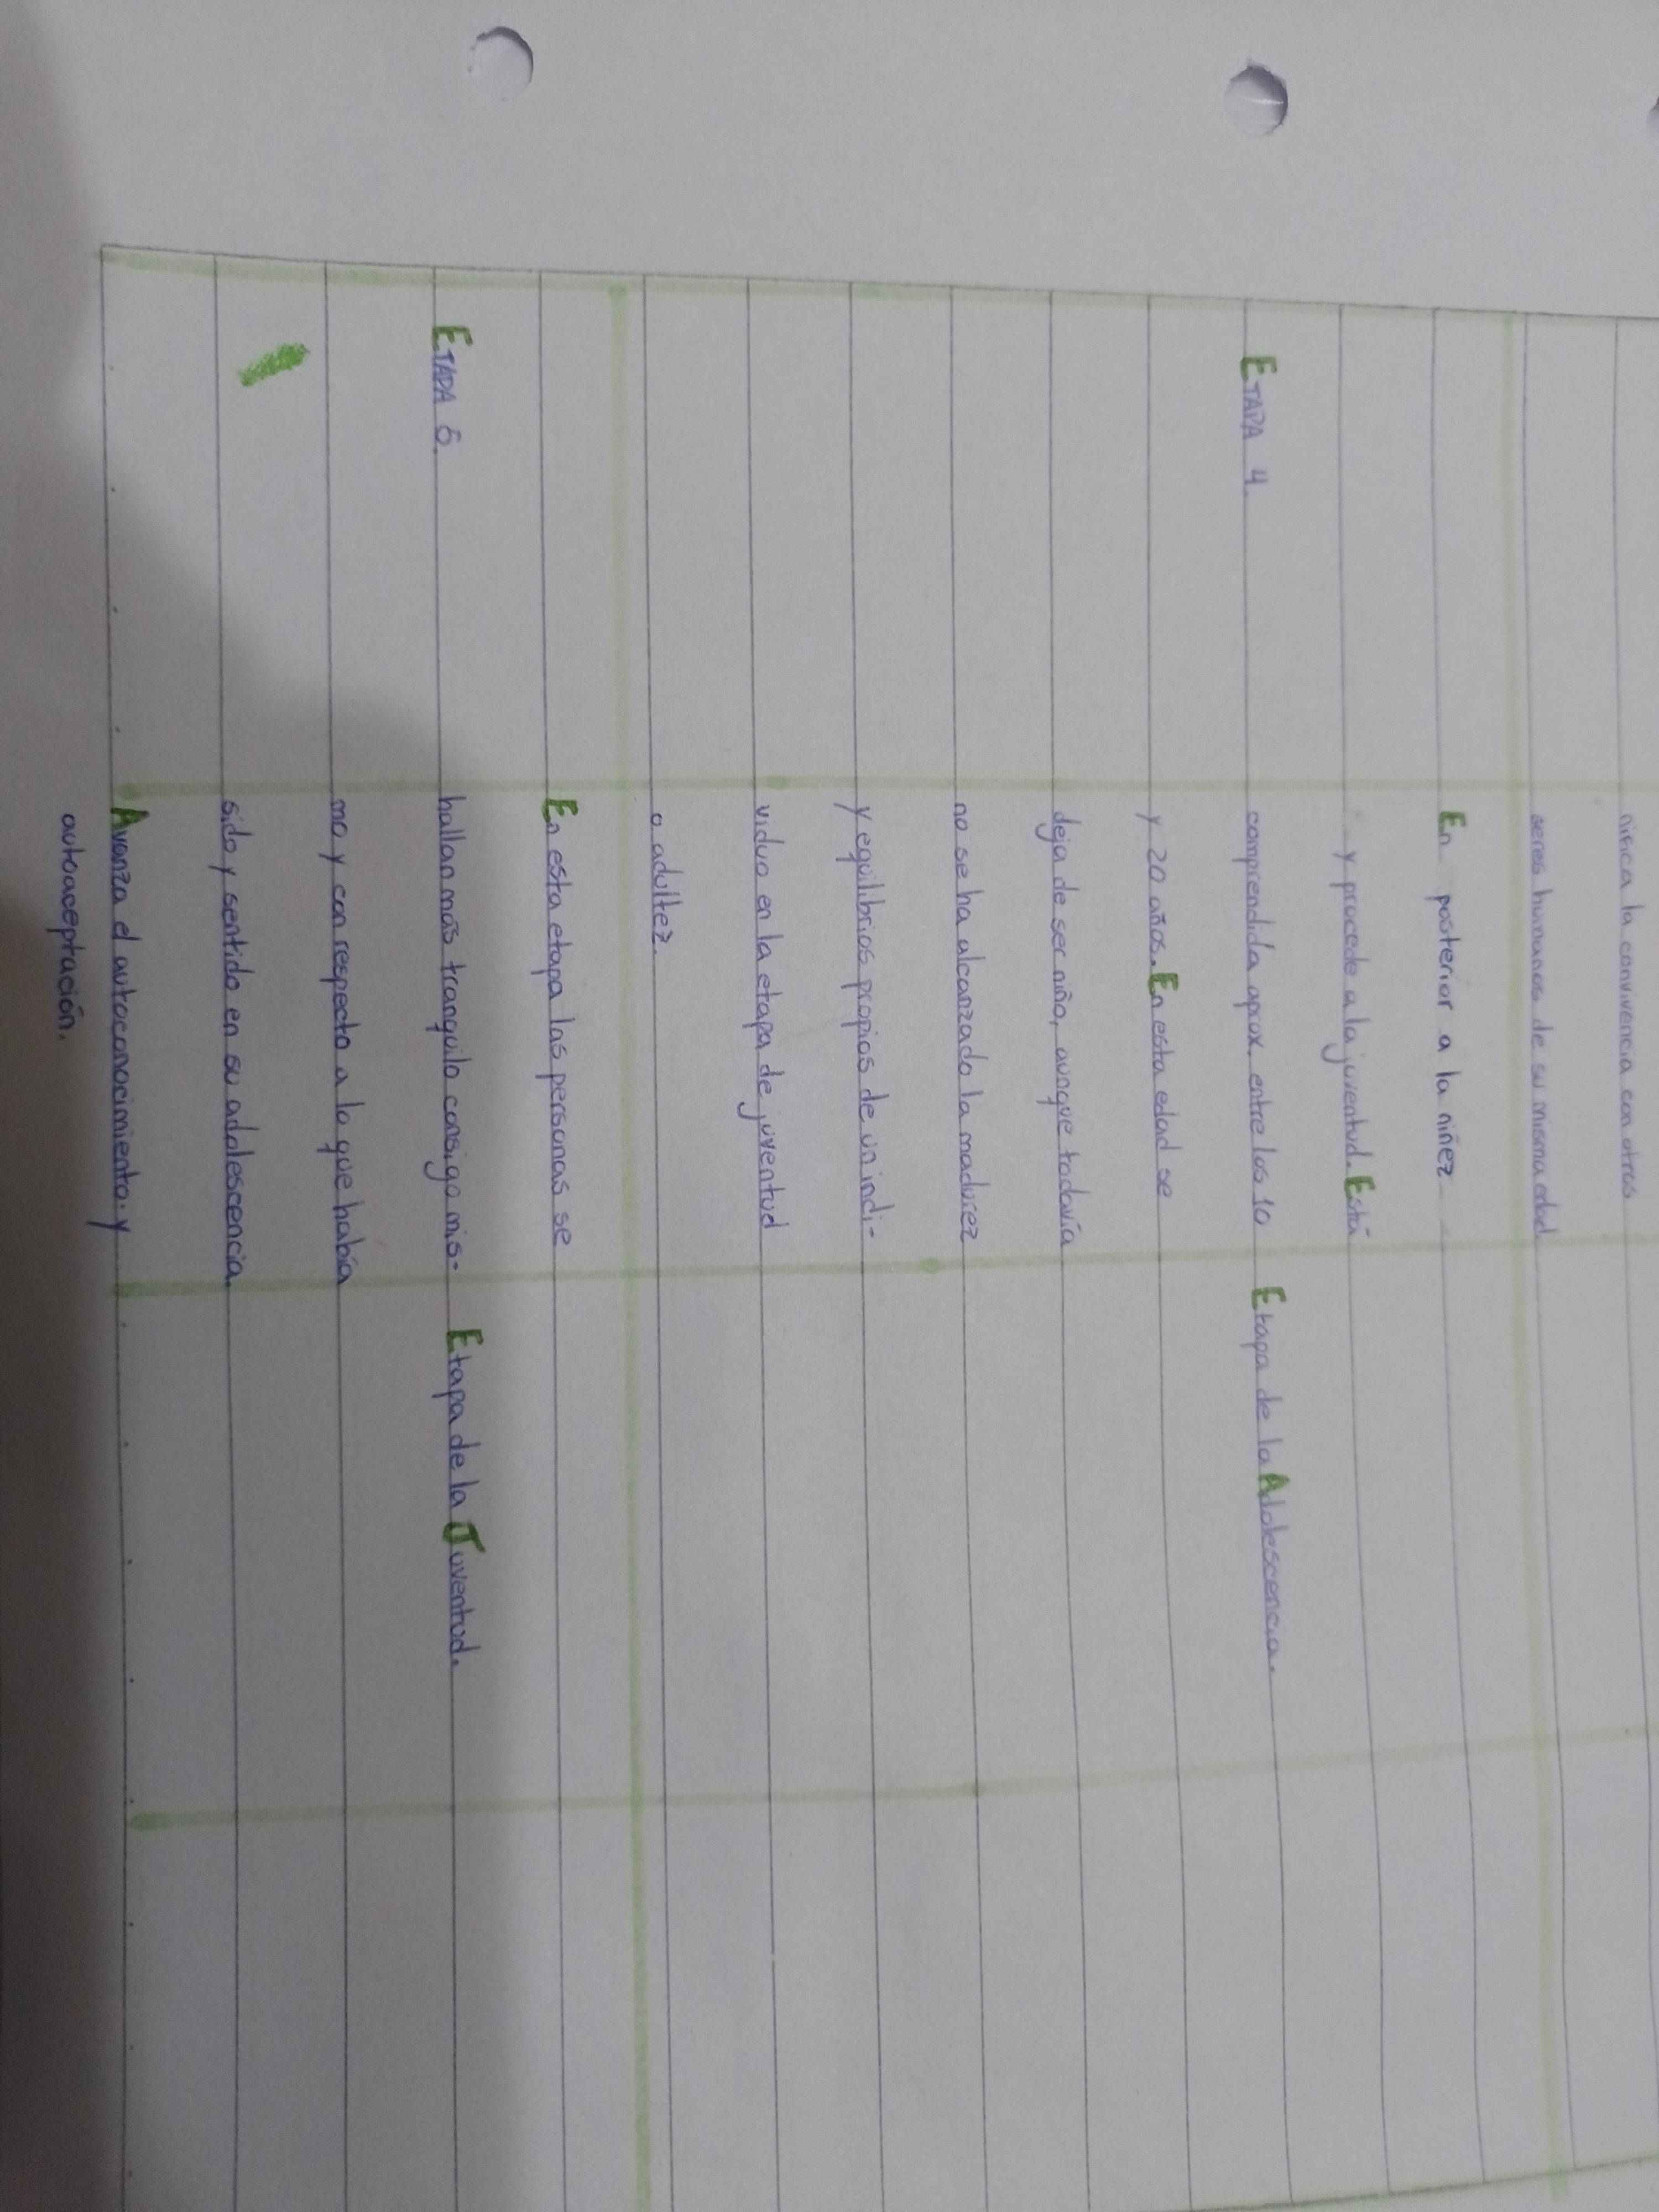 nifica la convivencia con otros
seres humanos de su misma edad
En posterior a la niñez
y procede a la juventud. Está
ETAPA 4. comprendida aprox. entre los 10 Etapa de la Adolescencia.
y 20 años. En esta edad se
deja de ser niño, aunque todavía
no se ha alcanzado la madurez
y equilibrios propios de un indi-
viduo en la etapa de juventud
o adultez.
En esta etapa las personas se
ETAPA 5. hallan más tranquilo consigo mis- Etapa de la Juventud.
mo y con respecto a lo que había
sido y sentido en su adolescencia
Avanza el autoconocimiento y
autoaceptación.